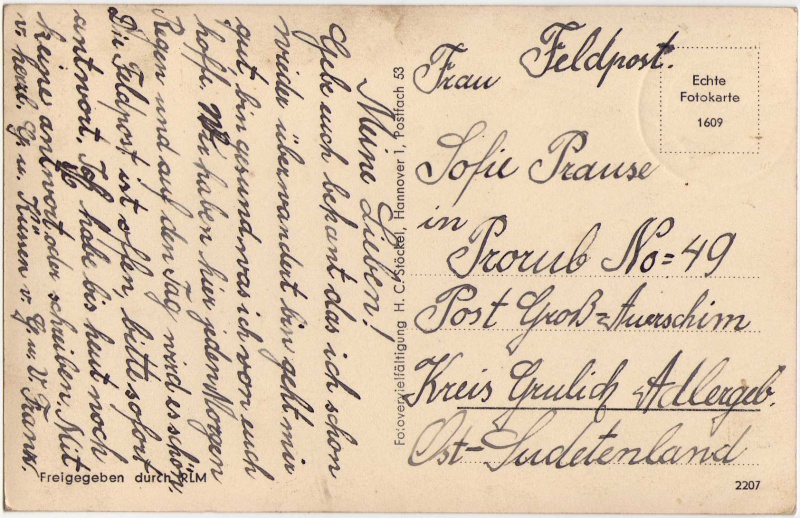 Meine Lieben!
Gebe euch bekant das ich schon
wieder überwandert bin geht mir
gut bin gesund was ich von euch
hoffe. Wir haben hier jeden Morgen
Regen und auf den Tag wird es schön.
Die Feldpost ist offen, bitte sofort
antwort. Ich habe bis heut noch
keine antwort oder schreiben. Mit
v. herzl. G. u. Küssen v. G. u. V. Franz.
Feldpost.
Frau
Sofie Prause
in
Prorub No=49
Post Groß=Auerschim
Kreis Grulich Adlergeb.
Ost-Sudetenland
Echte
Fotokarte
1609
Fotovervielfältigung H. C. Stöckel, Hannover 1, Postfach 53
Freigegeben durch RLM
2207